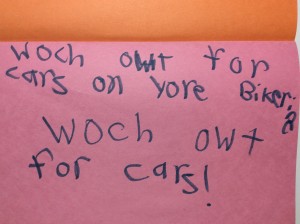 woch owt for
cars on yore Biker;
woch owt
for cars!